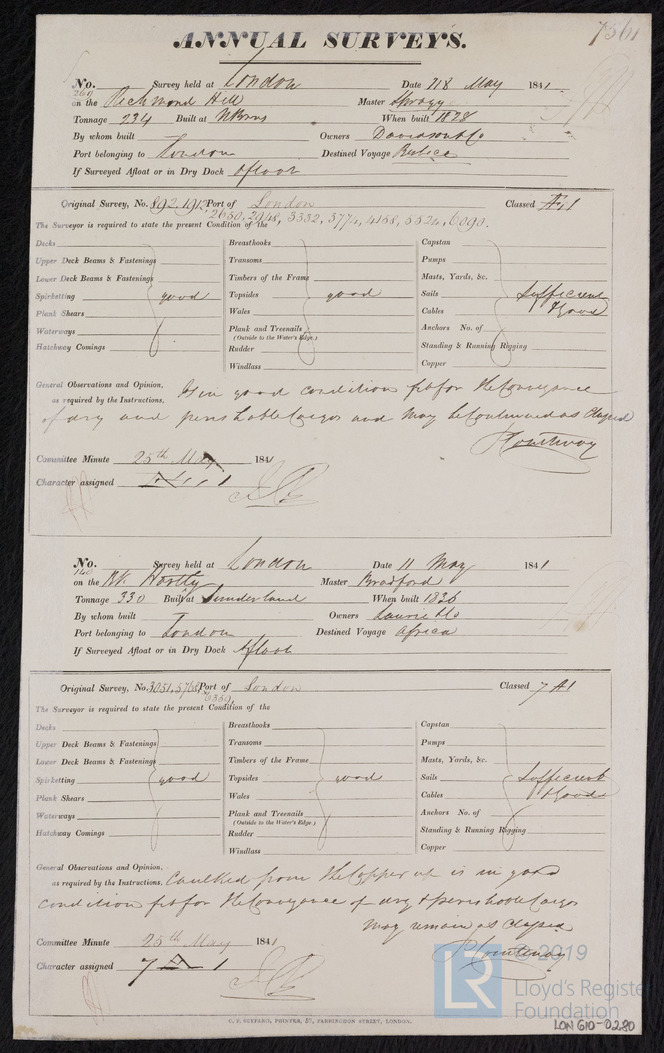 7561
ANNUAL SURVEYS.
No. 260 Survey held at London Date 18 May 1841
on the Richmond Hill Master
Tonnage 234 Built at When built 1828
By whom built — Owners Davidson & Co
Port belonging to London Destined Voyage
If Surveyed Afloat or in Dry Dock Afloat
Original Survey, No. 892.1912 Port of London Classed Æ1
2650, 2948, 3332, 3774, 4158, 5524, 6090.
The Surveyor is required to state the present Condition of the
Decks Breasthooks Capstan
Upper Deck Beams & Fastenings Transoms Pumps
Lower Deck Beams & Fastenings Timbers of the Frame Masts, Yards, &c.
Spirketting good Topsides good Sails Sufficient
Plank Shears Wales Cables & Good
Waterways Plank and Treenails Anchors No. of
(Outside to the Water's Edge.)
Hatchway Comings Rudder Standing & Running Rigging
Windlass Copper
General Observations and Opinion, Is in good condition fit for the Conveyance
as required by the Instructions,
of dry and perishable Cargos and may be Continued as Classed
P Courtenay
Committee Minute 25th May 1841
Character assigned Æ 1
No. 140 Survey held at London Date 11 May 1841
on the Bk Hartley Master Bradford
Tonnage 330 Built at Sunderland When built 1836
By whom built — Owners Laurie & Co
Port belonging to London Destined Voyage Africa
If Surveyed Afloat or in Dry Dock Afloat
Original Survey, No. 3051, 5765 Port of London Classed 7 A1
6350,
The Surveyor is required to state the present Condition of the
Decks Breasthooks Capstan
Upper Deck Beams & Fastenings Transoms Pumps
Lower Deck Beams & Fastenings Timbers of the Frame Masts, Yards, &c.
Spirketting good Topsides good Sails Sufficient
Plank Shears Wales Cables & Good
Waterways Plank and Treenails Anchors No. of
(Outside to the Water's Edge.)
Hatchway Comings Rudder Standing & Running Rigging
Windlass Copper
General Observations and Opinion,
as required by the Instructions, Caulked from the Copper up is in good
condition fit for the Conveyance of dry & perishable Cargos
may remain as Classed
P Courtenay
Committee Minute 25th May 1841
Character assigned 7 A 1
C. F. SEYFANG, PRINTER, 57, FARRINGDON STREET, LONDON.
LR © 2019
Lloyd's Register
Foundation
LON 610-0280